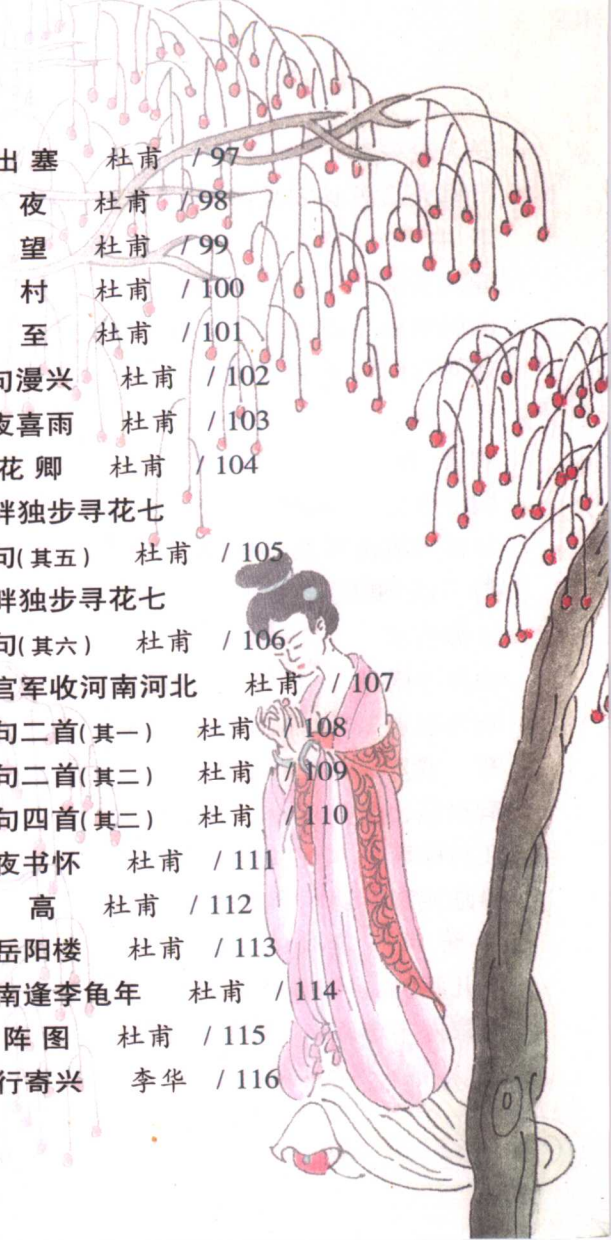 出塞 杜甫 / 97
夜 杜甫 / 98
望 杜甫 / 99
村 杜甫 / 100
至 杜甫 / 101
句漫兴 杜甫 / 102
夜喜雨 杜甫 / 103
花卿 杜甫 / 104
畔独步寻花七
句(其五) 杜甫 / 105
畔独步寻花七
句(其六) 杜甫 / 106
官军收河南河北 杜甫 / 107
句二首(其一) 杜甫 / 108
句二首(其二) 杜甫 / 109
句四首(其二) 杜甫 / 110
夜书怀 杜甫 / 111
高 杜甫 / 112
岳阳楼 杜甫 / 113
南逢李龟年 杜甫 / 114
阵图 杜甫 / 115
行寄兴 李华 / 116